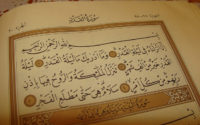 سورة القدر
بسم الله الرحمن الرحيم
إنا أنزلناه في ليلة القدر وما أدراك ما ليلة القدر ليلة
القدر خير من ألف شهر تنزل الملائكة والروح فيها بإذن
ربهم من كل أمر سلام هي حتى مطلع الفجر